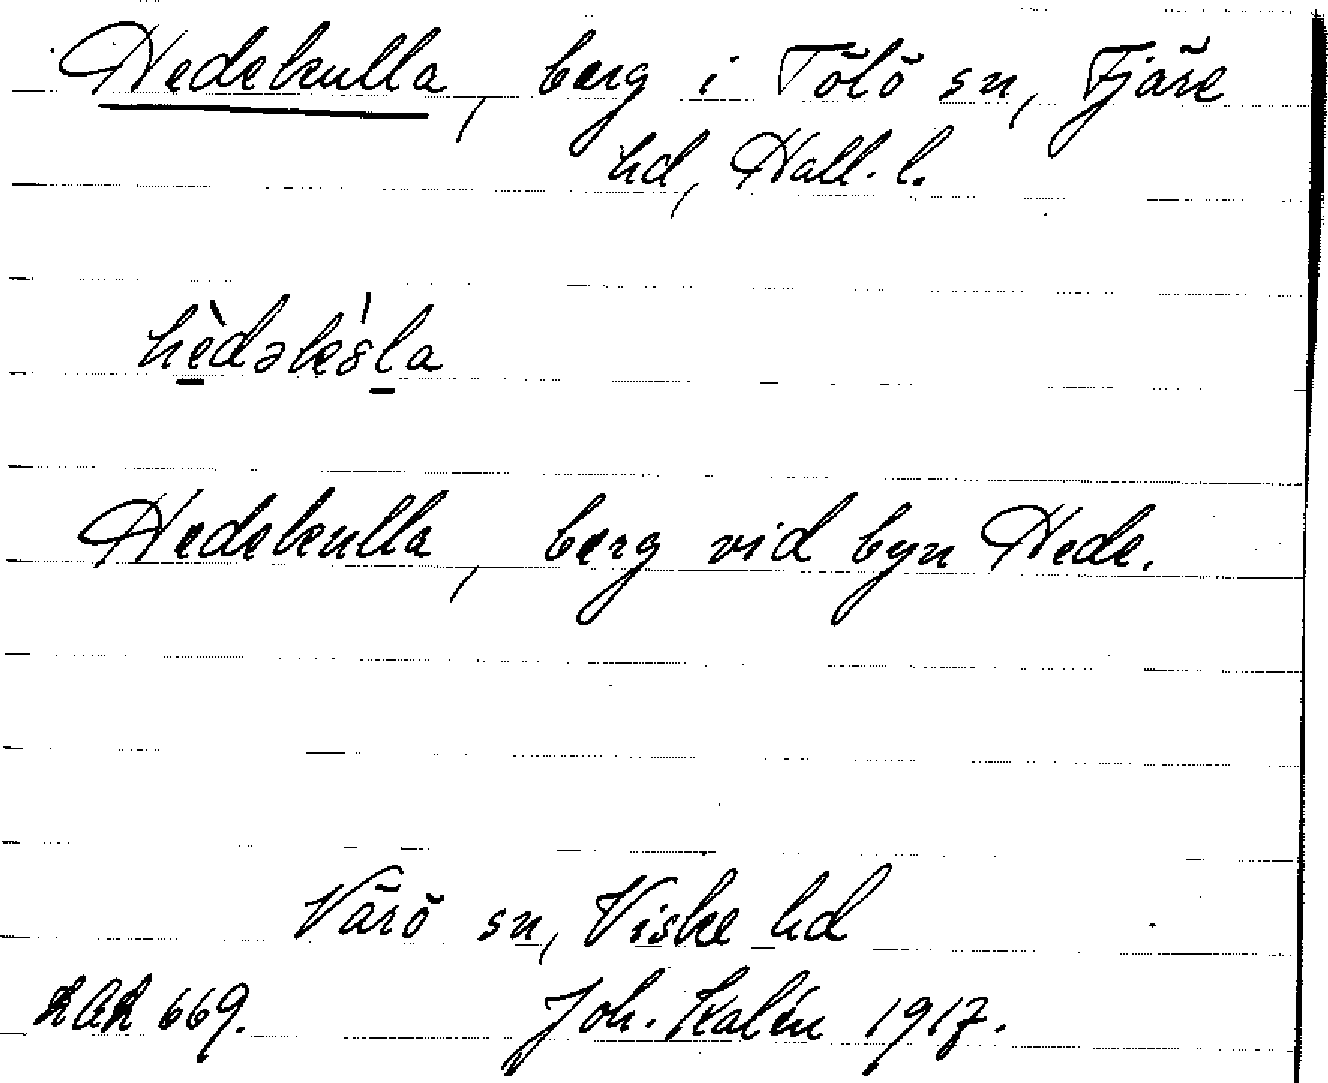 Hedekulla, berg i Tölö sn, Fjäre
hd, Hall. l.
hèdəkàla
Hedekulla, berg vid byn Hede.
Värö sn, Viske hd
669. Joh. Kalén 1917.